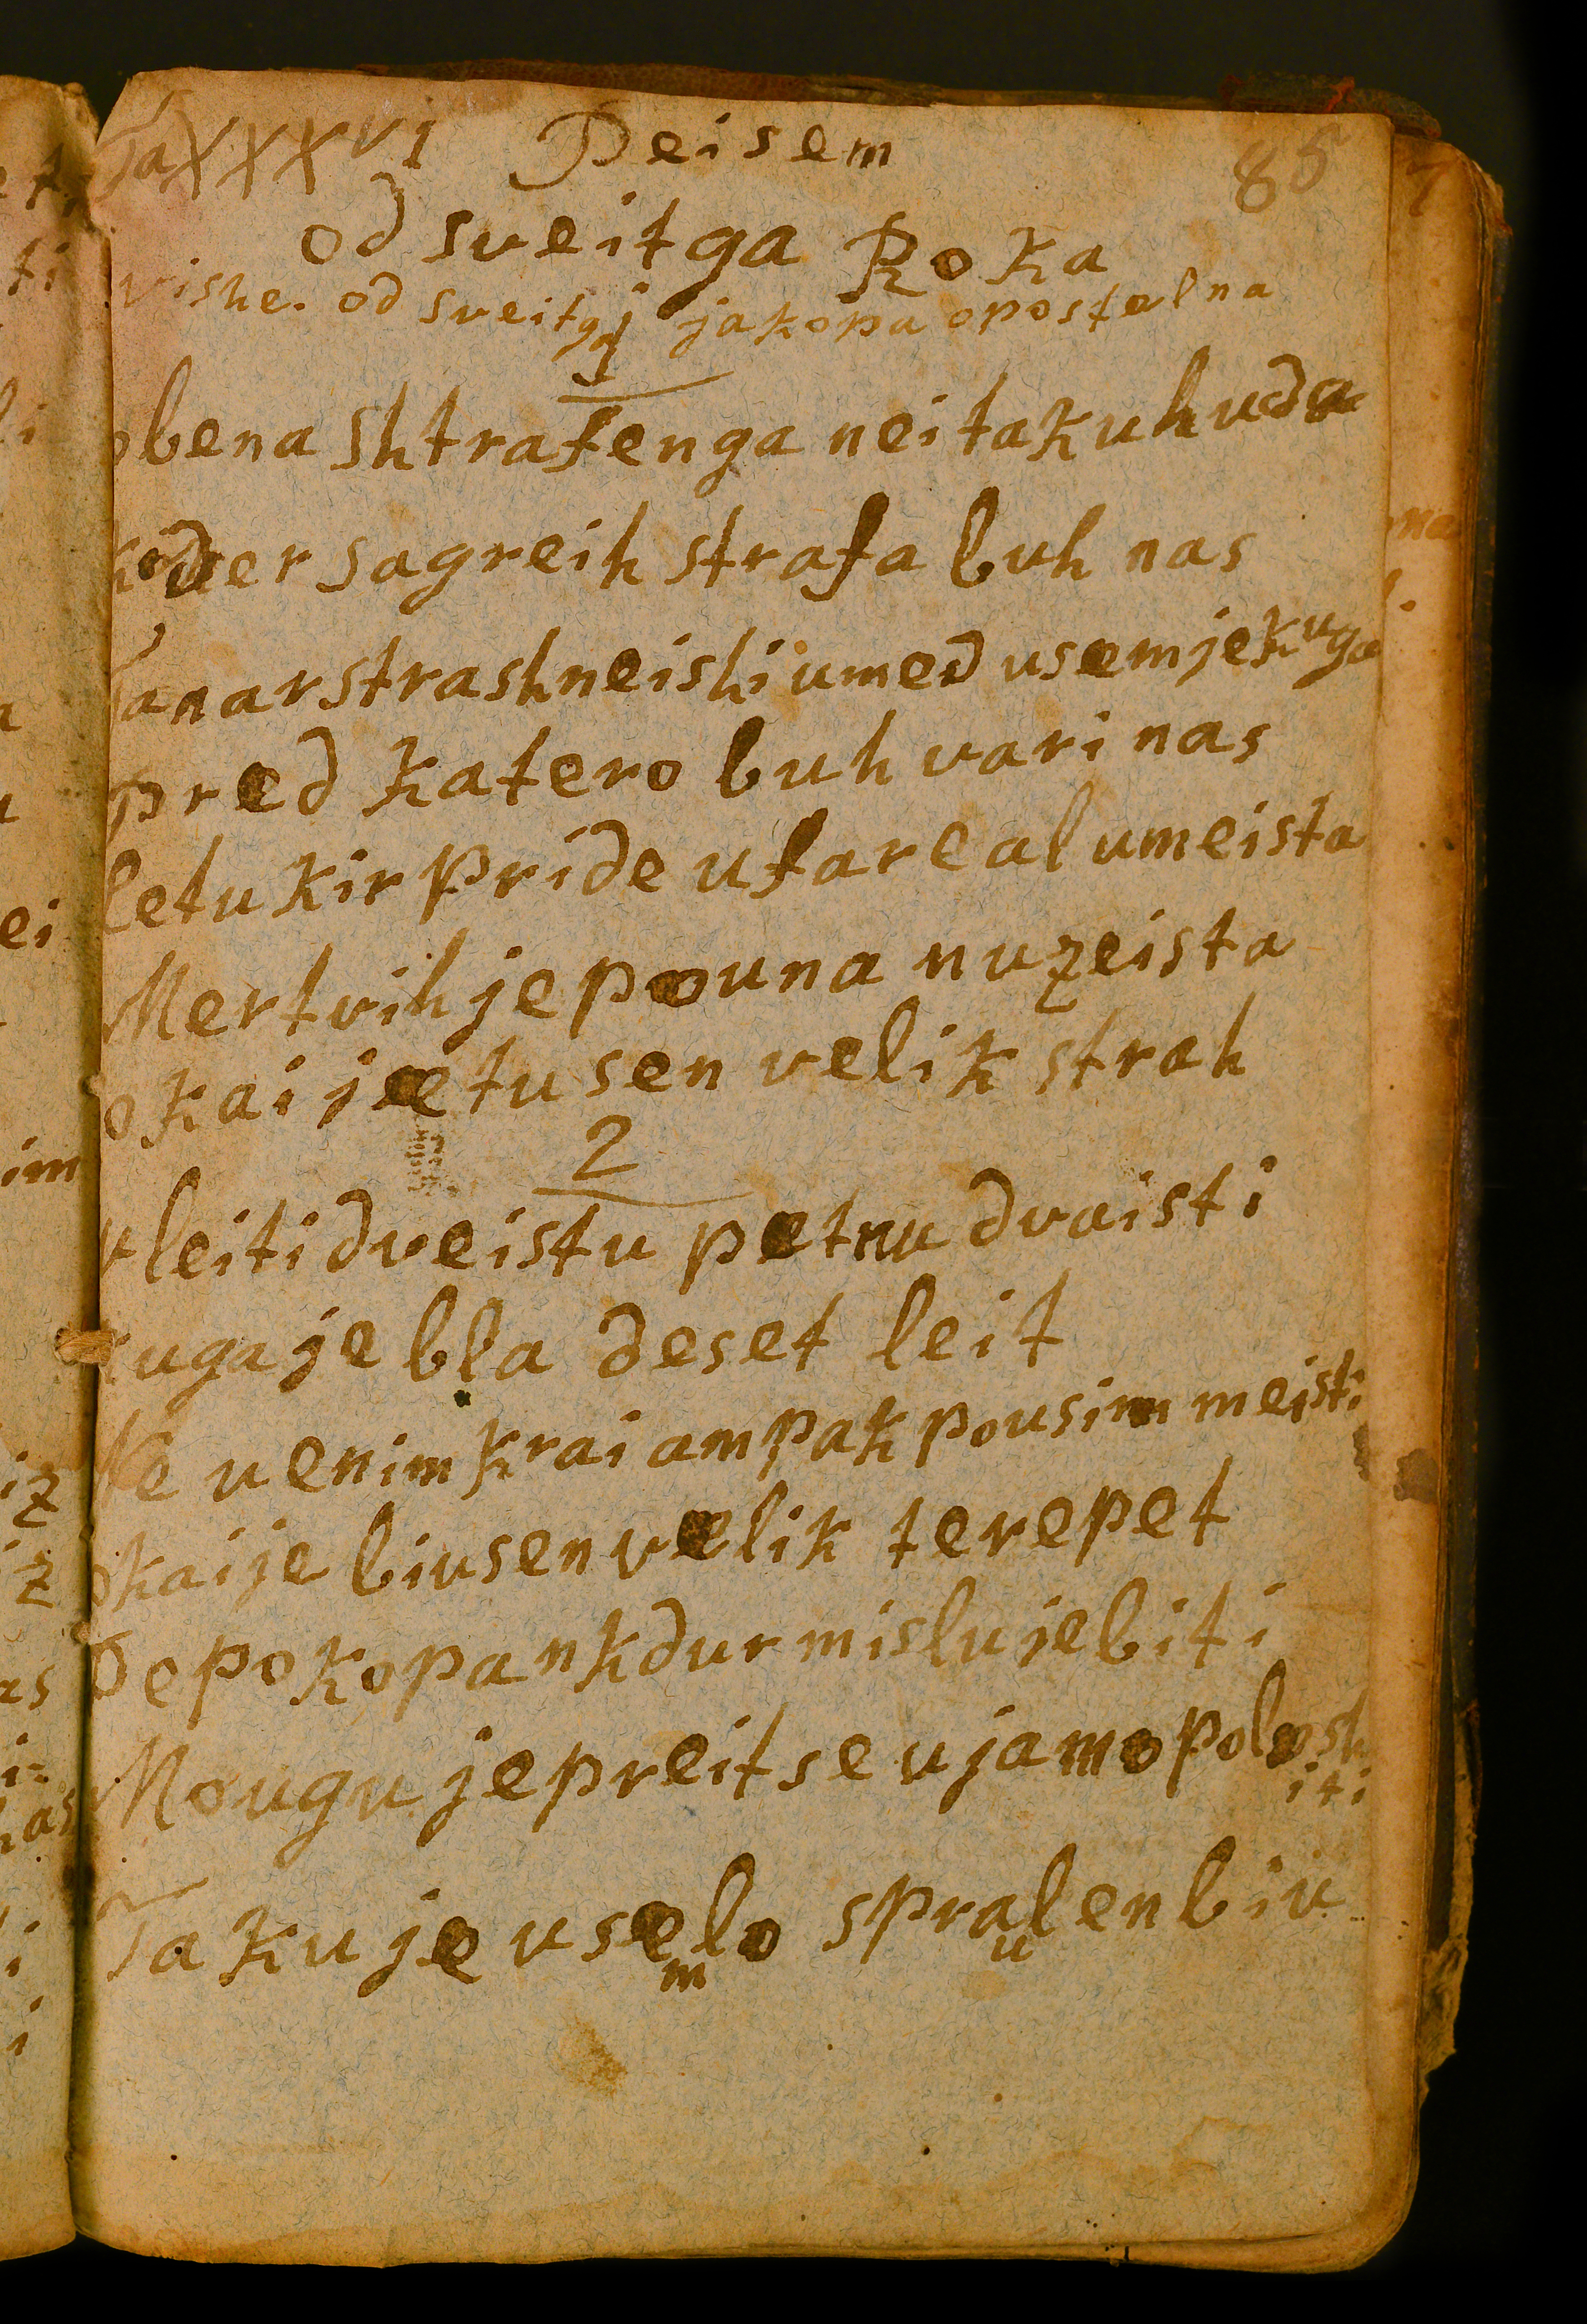 Ta XXXVI Peisem 85
od sveitga Roka
vishe. od sveitga jakopa opostelna
1
obena shtrafenga nei taku huda
koder sagreih strafa buh nas
Ta narstrashneishi umed usem je kuga
pred katero buh vari nas
letu kir pride ufare al umeista
Mertvih je pouna nu zeista
okai je tu sen velik strah
2
v leiti dveistu petnu dvaisti
kuga je bla deset leit
Ne u enim krai ampak pousim meisti
okai je biu sen velik terepet
De pokopan kdur mislu je biti
Mougu je preit se ujamo polosh
iti
Taku je vse lo spralen biu
m u